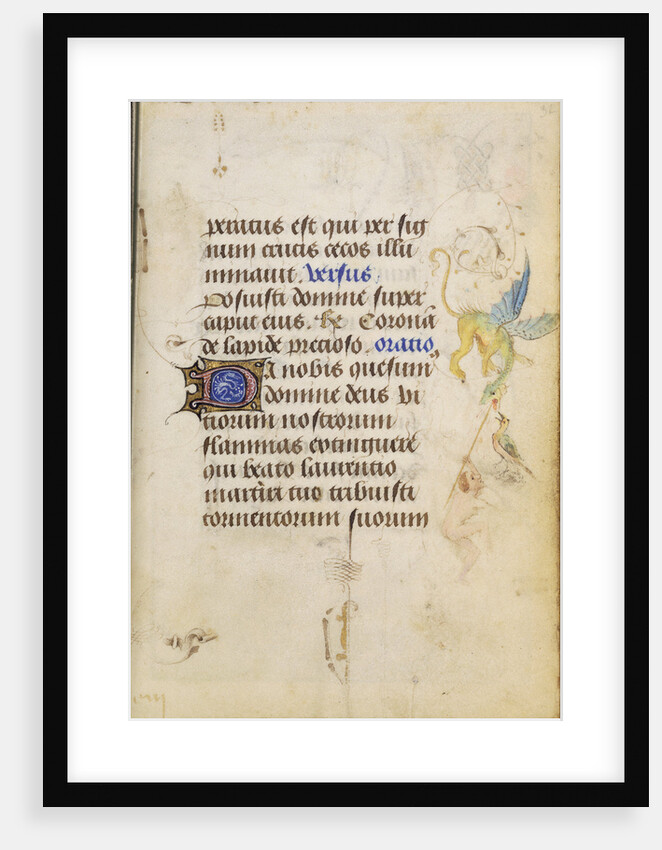 peratus est qui per sig
num crucis cecos illu
minauit. versus
Posuisti domine super
caput eius. Re Coronā
de lapide precioso. oratio
Da nobis quesum
domine deus vi
tiorum nostrorum
flammas extinguere
qui beato laurentio
martiri tuo tribuisti
tormentorum suorum